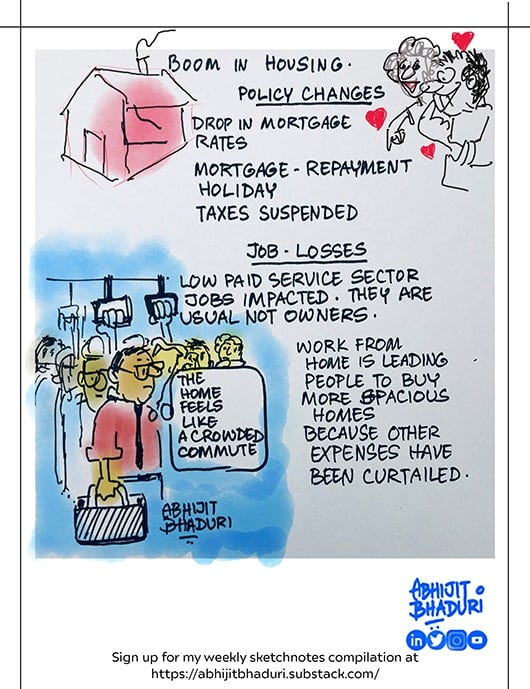 BOOM IN HOUSING.
POLICY CHANGES
DROP IN MORTGAGE
RATES
MORTGAGE - REPAYMENT
HOLIDAY
TAXES SUSPENDED
JOB - LOSSES
LOW PAID SERVICE SECTOR
JOBS IMPACTED. THEY ARE
USUAL NOT OWNERS.
WORK FROM
HOME IS LEADING
PEOPLE TO BUY
MORE SPACIOUS
HOMES
BECAUSE OTHER
EXPENSES HAVE
BEEN CURTAILED.
THE
HOME
FEELS
LIKE
A CROWDED
COMMUTE
ABHIJIT
BHADURI
ABHIJIT
BHADURI
in
Sign up for my weekly sketchnotes compilation at
https://abhijitbhaduri.substack.com/